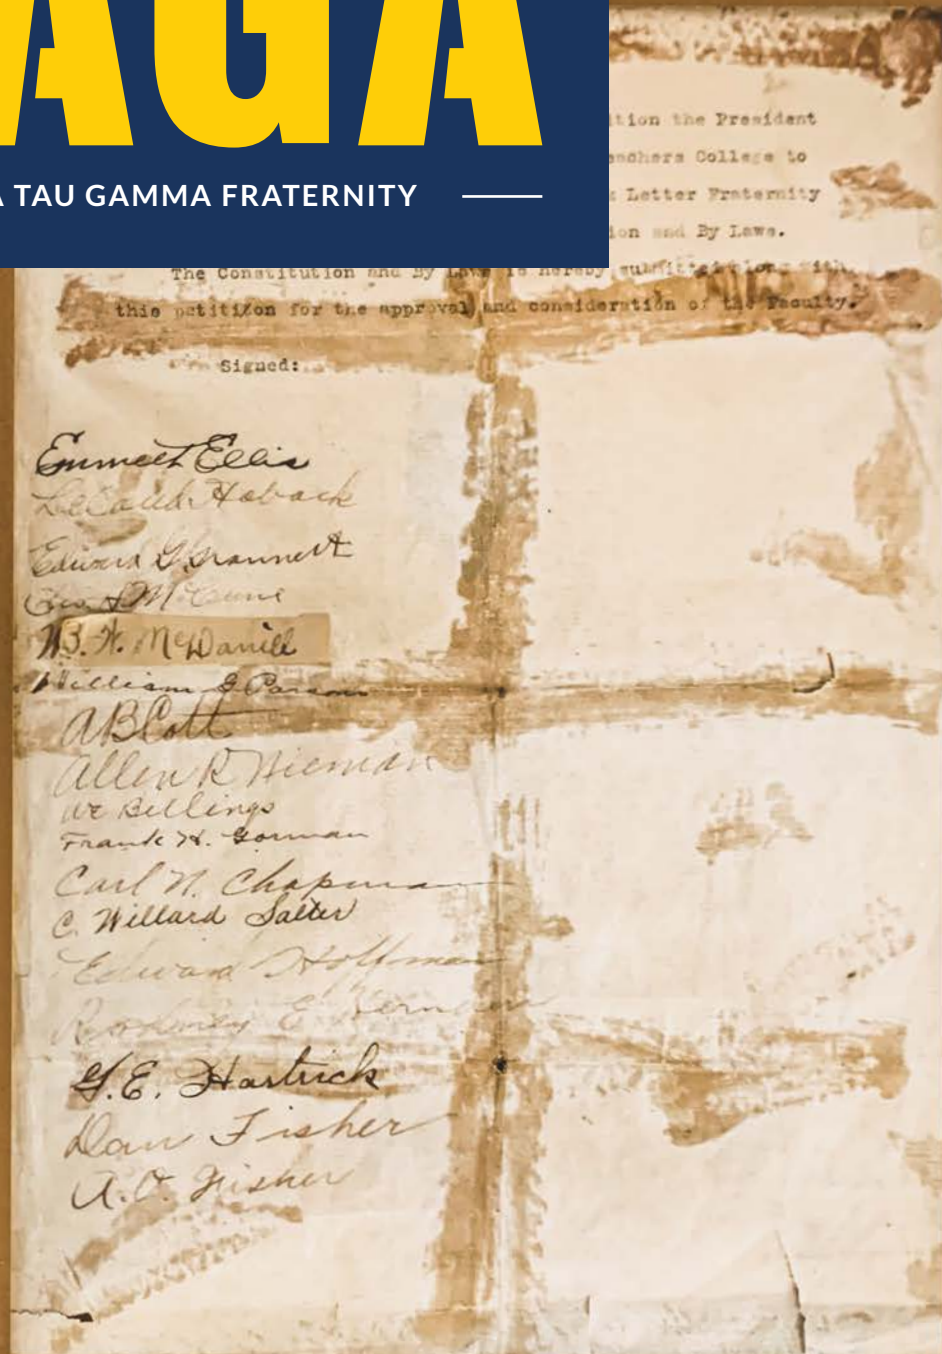 AGA
TAU GAMMA FRATERNITY
ition the President
eachers College to
k Letter Fraternity
ion and By Laws.
The Constitution and By Laws is hereby submitted along with
this petitixon for the approval and consideration of the Faculty.
Signed:
Emmett Ellis
Leland Hoback
Edward G Grannert
Geo S McCune
W. H. McDaniell
William G Parsons
A B Cott
Allen R Nieman
W E Billings
Frank H. Gorman
Carl N. Chapman
C. Willard Salter
Edward Hoffman
Rodney E Herndon
G. E. Hartrick
Dan Fisher
A. O. Fisher